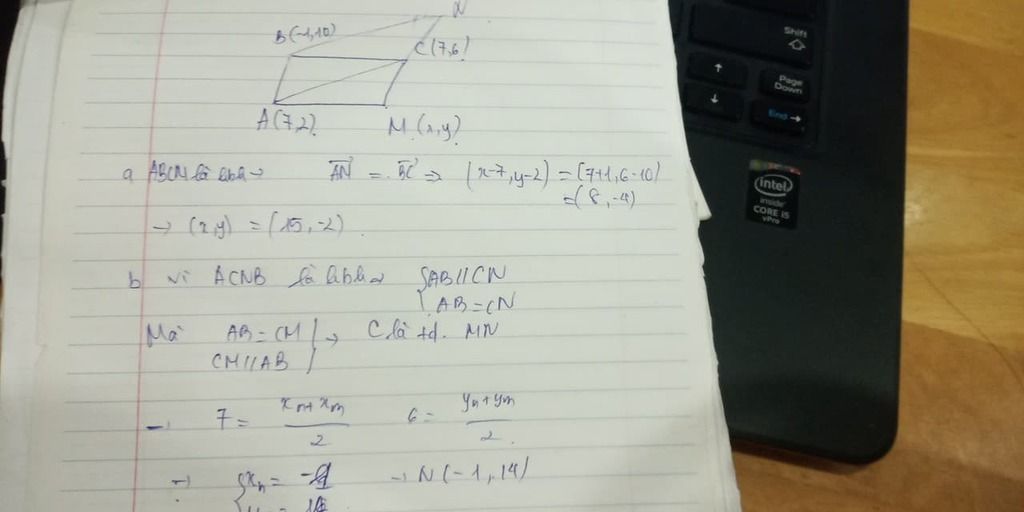 N
B(-1,10)
C(7,6)
A(7,2)
M(x,y)
a ABCM là hbh → AM = BC ⇒ (x-7, y-2) = (7+1, 6-10)
= (8, -4)
→ (x,y) = (15, -2)
b vì ACNB là hbh → { AB // CN
AB = CN
Mà AB = CM → C là td. MN
CM // AB
→ 7 = (x_n + x_m)/2 6 = (y_n + y_m)/2
→ { x_n = -1 → N(-1, 14)
Shift
↑
Page Down
↓
End →
intel
inside
CORE i5
vPro